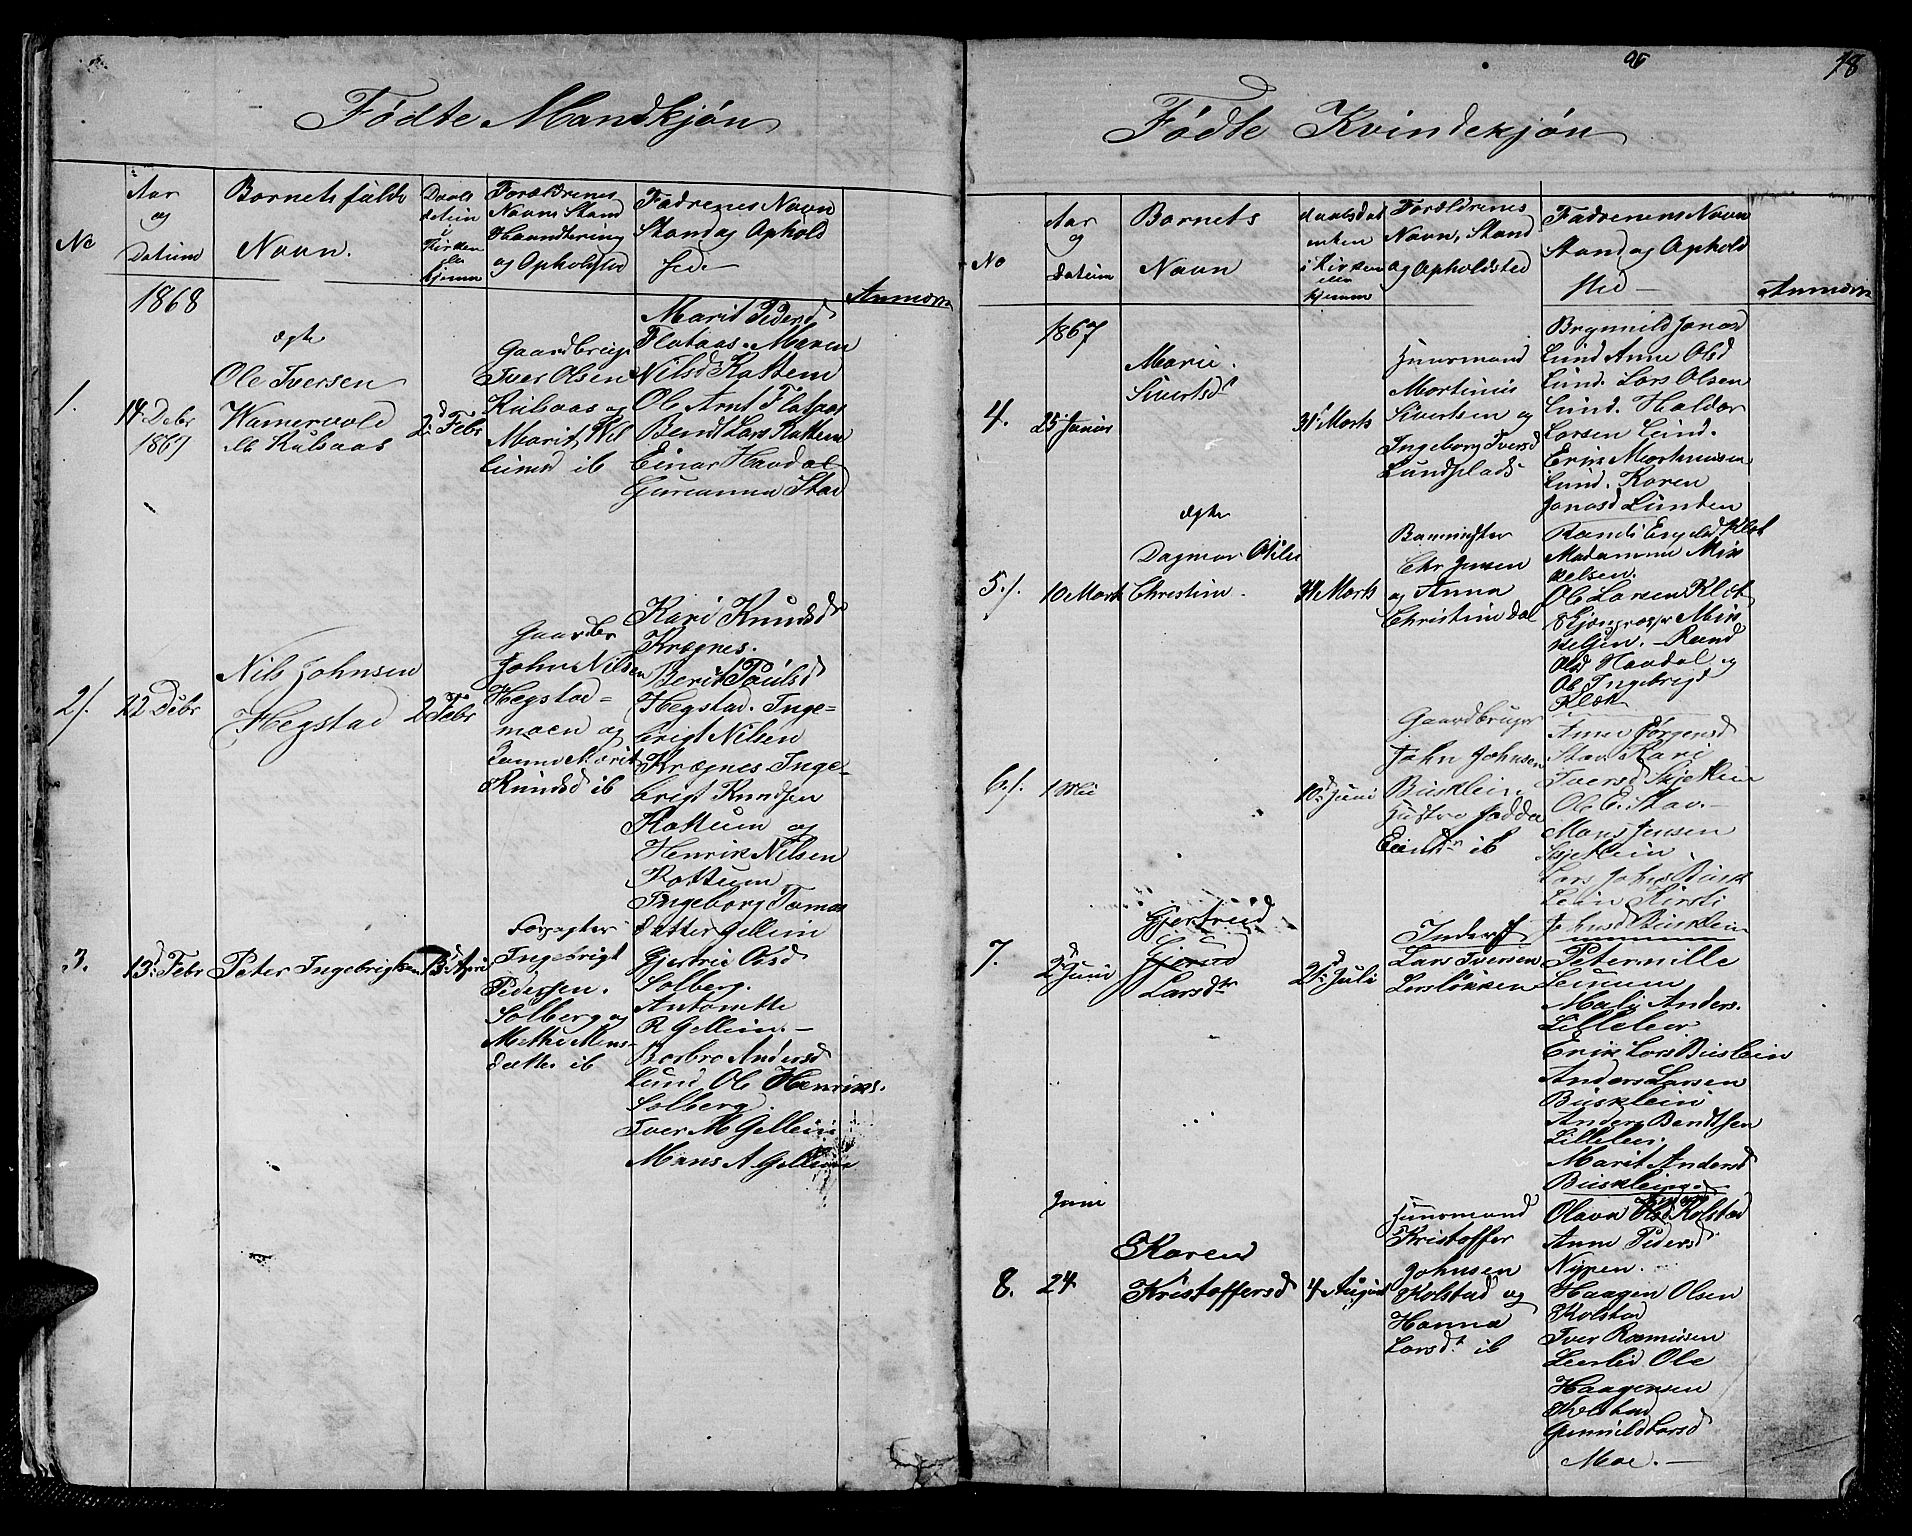 Fødte Mandkjøn
No
Aar
og
Datum
Barnets fulde
Navn.
Daabs
datum
i
Kirken
eller
hjemme
Forældrenes
Navn Stand
Haandtering
og Opholdsted
Fadrenes Navn
Stand og Ophold
sted
Anmærk
1868
1.
14 Debr
1867
ægte
Ole Iversen
Kulsaas
2d Febr
Gaardbrug
Iver Olsen
Kulsaas og
Marit
ib
Marit Pedersd
Flataas. Maren
Nilsd Kattem
Ole Arnt Flataas
Bendt Lars Kattem
Einar Havdal
Gurianna Stav
2/.
22 Debr
Nils Johnsen
Hegstad
2 Febr
Gaardbr
John Nilsen
Hegstad-
moen og
Marit
Knudsd ib
Kari Knudsd
Krægnes.
Berit Paulsd
Hegstad. Inge-
brigt Nilsen
Krægnes Inge-
brigt Knudsen
Kattum og
Henrik Nilsen
Kattum
Ingeborg Tomas
datter Gellein
3.
13d Febr
Peter Ingebrigtsen
13d April
Forpagter
Ingebrigt
Pedersen.
Solberg og
Methe Mons-
datter ib
Gjertrue Olsd
Solberg.
Antonette
R Gellein.-
Barbro Andersd
Lund Ole Henriks.
Solberg.
Iver M Gellein
Mons A Gellein
98
Fødte Kvindekjøn
No
Aar
og
Datum
Barnets
Navn
Daabsdat
enten
i Kirken
eller
hjemme
Forældrenes
Navn, Stand
og Opholdsted
Fadrenens Navn
Stand og Ophold
sted
Anmærk
1867
4.
25 Januar
Marie
Sivertsd
31 Marts
Huusmand
Mortinus
Sivertsen og
Ingeborg Iversd
Lundplads
Brynnild Jonasd
Lund Anne Olsd
Lund. Lars Olsen
Lund. Haldor
Larsen Lund.
Erik Mortensen
Lund. Karen
Jonasd Lunden
5/.
10 Marts
ægte
Dagmar Otilie
Christine
31 Marts
Banemester
Chr Jensen
og Anna
Christine Dal
Randi Engelsd Klæt
Madamme Mik
kelsen.
Ole Larsen Klæt
Mik
kelsen. Rand
Olsd Havdal og
Ole Ingebrigt
Klæt
6/.
1 Mai
10d Juni
Gaardbruger
John Johnsen
Busklein
Hustro
ib
Anne Jørgensd
Stav Kari
Iversd Skjetlein
Ole E. Stav.-
Mons Jensen
Skjetlein
Lars Johns Busk
lein Kirsti
Johnsd Busklein
7.
2d Juni
Gjertrud
Larsdtr
21d Juli
Inderst
Lars Iversen
Lersløkken
Peternille
Leinum
Mali Anders.
Lilleler
Erik Lars Busklein
Anders Larsen
Busklein
Anders Bendtsen
Lilleler.
Marit Andersd
Busklein
8.
Juni
24
Karen
Kristoffersd
4 August
Huusmand
Kristoffer
Johnsen
Kolstad og
Hanna
Larsdt ib
Olava Kolstad
Anne Pedersd
Nypen.
Haagen Olsen
Kolstad
Iver Rasmusen
Leerlid Ole
Haagensen
Kolstad
Gunnild Larsd
Moe.-